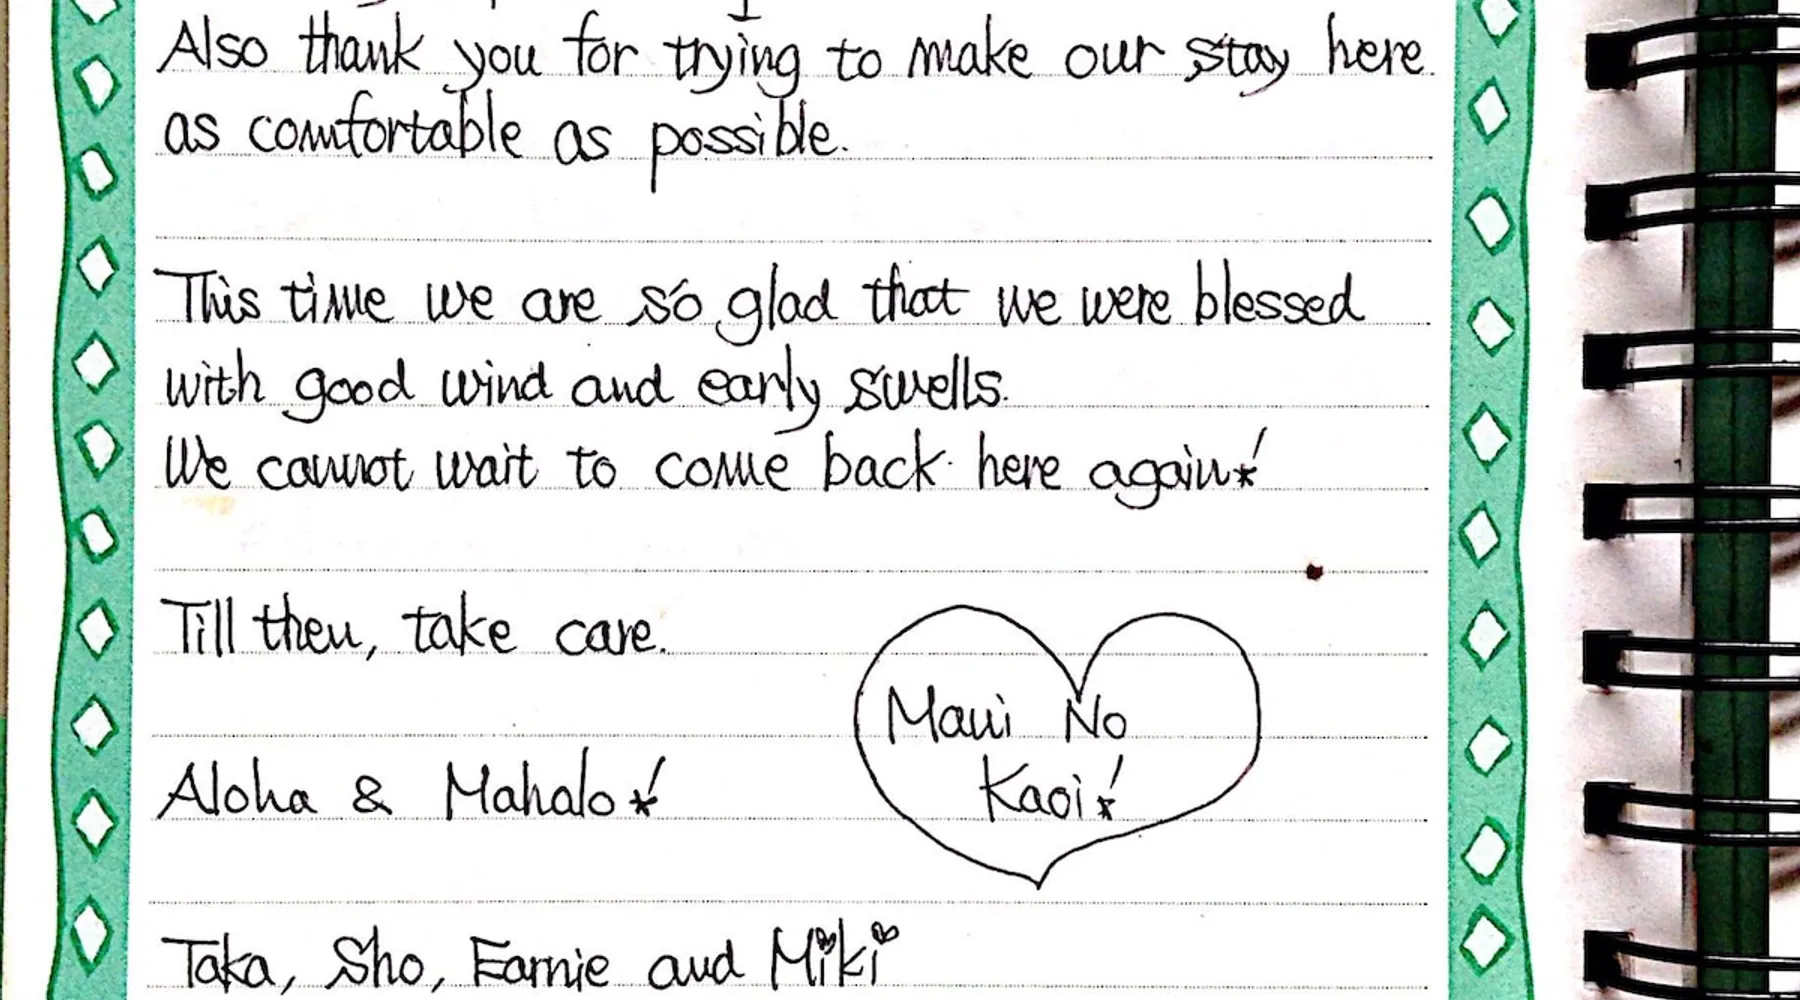 Also thank you for trying to make our stay here
as comfortable as possible.
This time we are so glad that we were blessed
with good wind and early swells.
We cannot wait to come back here again!
Till then, take care.
Maui No
Kaoi!
Aloha & Mahalo!
Taka, Sho, Earnie and Miki